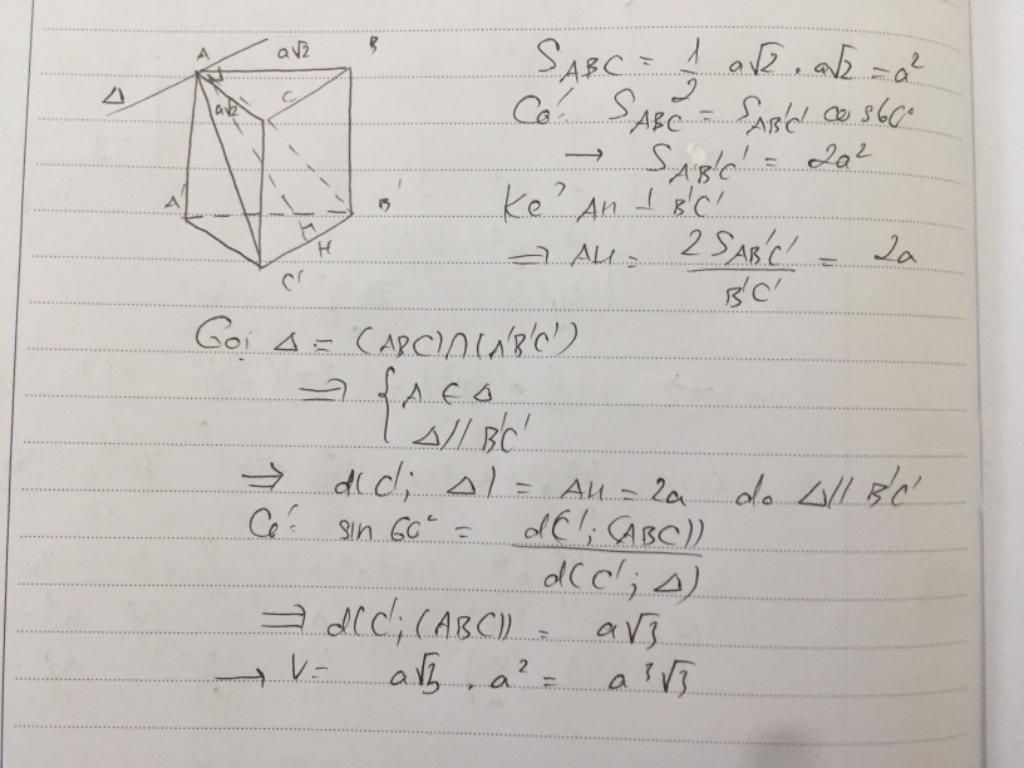 A a√2 B
Δ a√2 C
A' B'
H
C'
S_ABC = 1/2 a√2 . a√2 = a²
Có: S_ABC = S_AB'C' cos60°
→ S_AB'C' = 2a²
Kẻ AH ⊥ B'C'
⇒ AH = 2S_AB'C' / B'C' = 2a
Gọi Δ = (ABC)∩(A'B'C')
⇒ { A ∈ Δ
Δ // B'C'
⇒ d(C'; Δ) = AH = 2a do Δ // B'C'
Có: sin 60° = d(C'; (ABC)) / d(C'; Δ)
⇒ d(C'; (ABC)) = a√3
→ V = a√3 . a² = a³√3